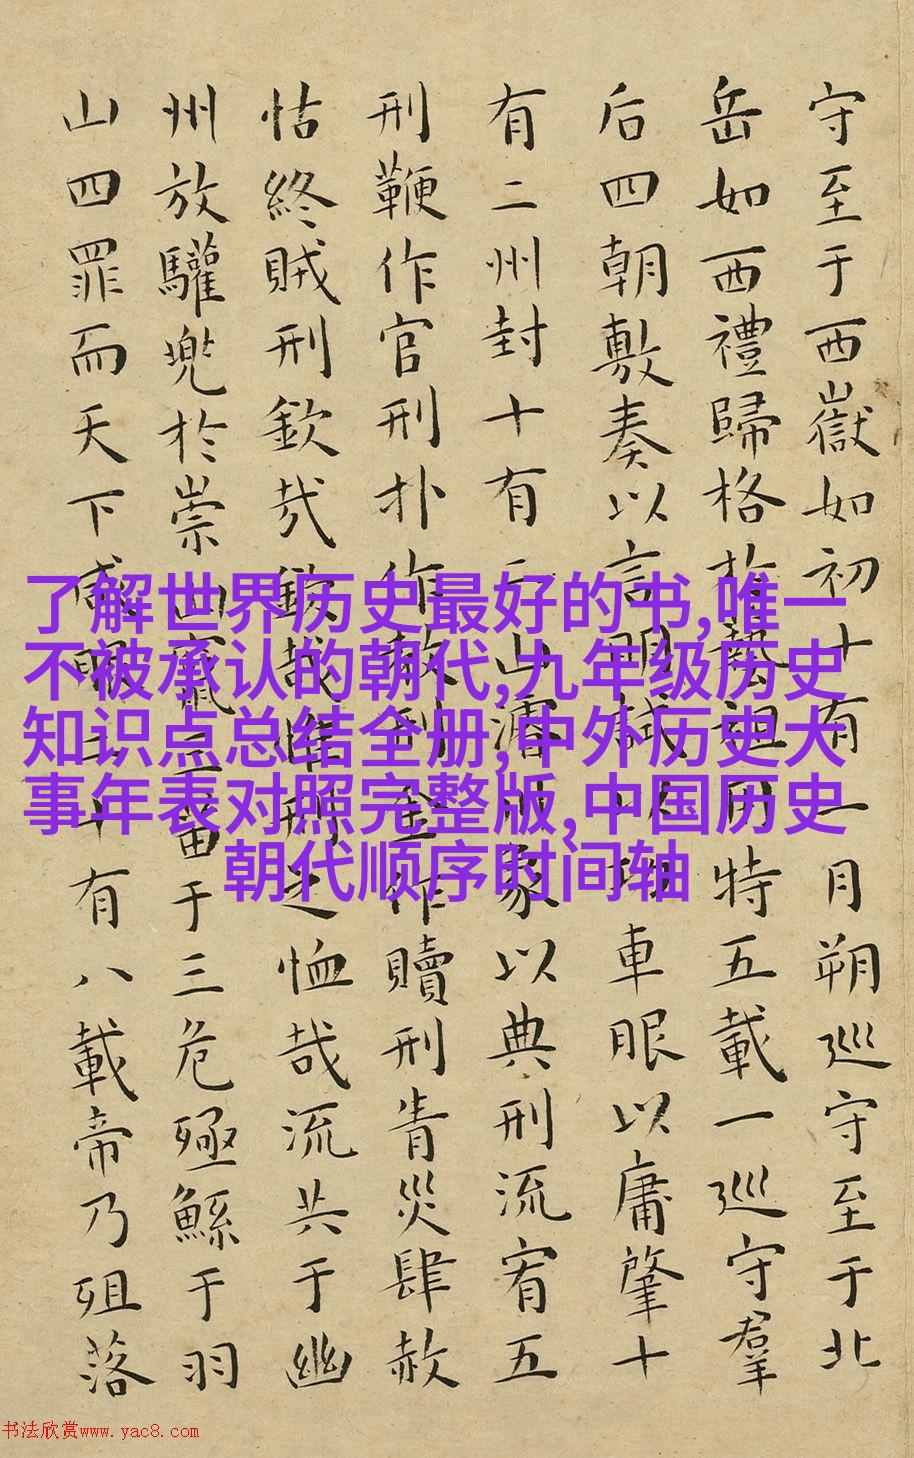 守至于西嶽如初十有一月朔巡守至于北
岳如西禮歸格於藝祖用特五載一巡守羣
后四朝敷奏以言明試以功車眼以庸肇十
有二州封十有二山濬川象以典刑流宥五
刑鞭作官刑扑作教刑金作贖刑眚災肆赦
怙終賊刑欽哉欽哉惟刑之恤哉流共于幽
州放驩兜於崇山竄三苗于三危殛鯀于羽
山四罪而天下咸服二十有八載帝乃殂落
了解世界历史最好的书,唯一
不被承认的朝代,九年级历史
知识点总结全册,中外历史大
事年表对照完整版,中国历史
朝代顺序时间轴
书法欣赏www.yac8.com